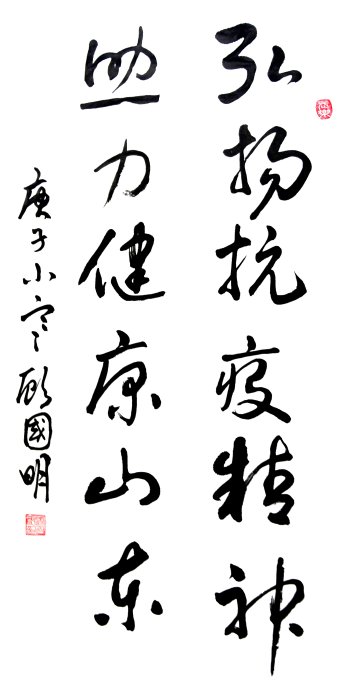 弘扬抗疫精神
助力健康山东
庚子小寒顾国明